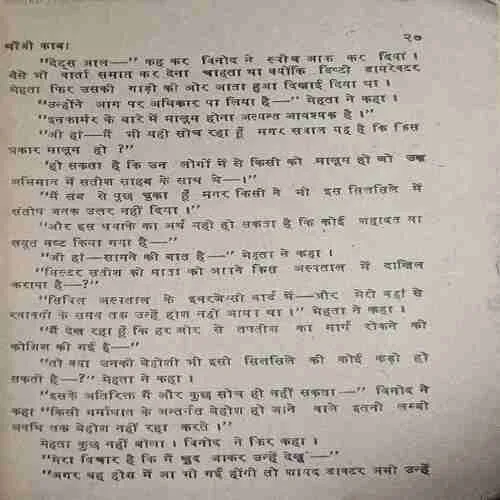 चाँदी काव। २७
"देट्स आल—" कह कर विनोद ने स्वीच आफ कर दिया ।
वैसे भी वार्ता समाप्त कर देना चाहता था क्योंकि डिप्टी डायरेक्टर
मेहता फिर उसकी गाड़ी की ओर आता हुआ दिखाई दिया था ।
"उन्होंने आग पर अधिकार पा लिया है—" मेहता ने कहा ।
"इनफार्मर के बारे में मालूम होना अत्यन्त आवश्यक है ।"
"जी हां—मैं भी यही सोच रहा हूँ मगर सवाल यह है कि किस
प्रकार मालूम हो ?"
'हो सकता है कि उन लोगों में से किसी को मालूम हो जो उस
अभियान में सतीश साहब के साथ थे—।"
"मैं सब से पूछ चुका हूँ मगर किसी ने भी इस सिलसिले में
संतोष जनक उत्तर नहीं दिया ।"
"और इस धमाके का अर्थ यही हो सकता है कि कोई शहादत या
सबूत नष्ट किया गया है—"
"जी हां—सामने की बात है—" मेहता ने कहा ।
"मिस्टर सतीश की माता को आपने किस अस्पताल में दाखिल
कराया है—?"
"सिविल अस्पताल के इमरजेन्सी वार्ड में—और मेरी वहां से
रवानगी के समय तक उन्हें होश नहीं आया था ।" मेहता ने कहा ।
"मैं देख रहा हूँ कि हर ओर से तफ्तीश का मार्ग रोकने की
कोशिश की गई है—"
"तो क्या उनकी बेहोशी भी इसी सिलसिले की कोई कड़ी हो
सकती है—?" मेहता ने कहा ।
"इसके अतिरिक्त मैं और कुछ सोच ही नहीं सकता—" विनोद ने
कहा "किसी मर्माघात के अन्तर्गत बेहोश हो जाने वाले इतनी लम्बी
अवधि तक बेहोश नहीं रहा करते ।"
मेहता कुछ नहीं बोला । विनोद ने फिर कहा ।
"मेरा विचार है कि मैं खुद जाकर उन्हें देखूं—"
"अगर वह होश में आ भी गई होंगी तो शायद डाक्टर अभी उन्हें